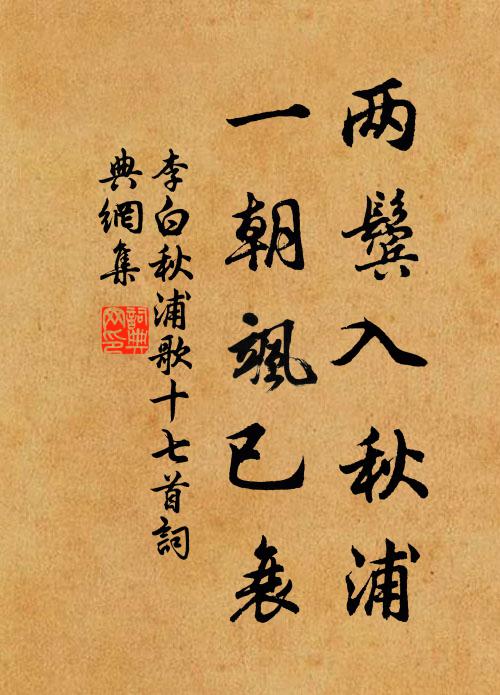 两鬓入秋浦
一朝飒已衰
李白秋浦歌十七首詞
典網集
詞典
网印